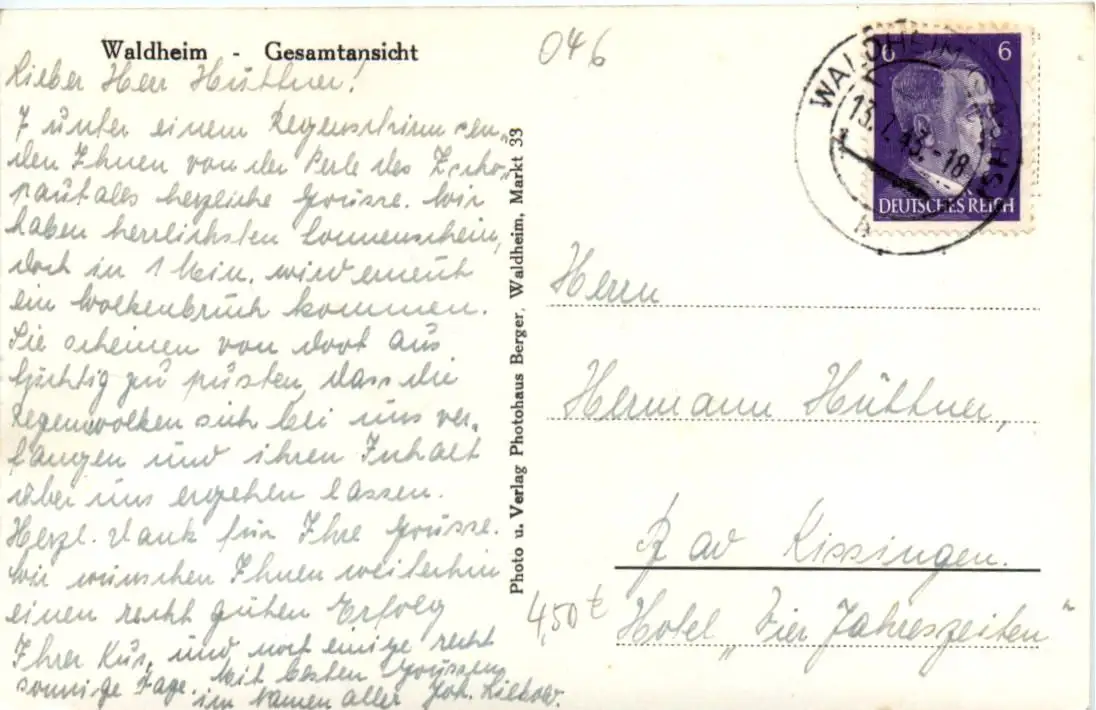 Waldheim - Gesamtansicht
046
Lieber Herr Hüttner!
7 unter einem Regenschirm sen-
den Ihnen von der Perle des Zscho-
pautales herzliche Grüsse. Wir
haben herrlichsten Sonnenschein,
doch in 1 Min. wird erneut
ein Wolkenbruch kommen.
Sie scheinen von dort aus
tüchtig zu pusten, dass die
Regenwolken sich bei uns ver-
fangen und ihren Inhalt
über uns ergehen lassen.
Herzl. Dank für Ihre Grüsse.
Wir wünschen Ihnen weiterhin
einen recht guten Erfolg
Ihrer Kur, und noch einige recht
sonnige Tage. Mit besten Grüssen
im Namen aller Joh.
Photo u. Verlag Photohaus Berger, Waldheim, Markt 33
WALDHEIM (SACHS)
13.7.43.-18
6 6
DEUTSCHES REICH
Herrn
Hermann Hüttner,
Bad Kissingen.
4,50 €
Hotel „Vier Jahreszeiten"